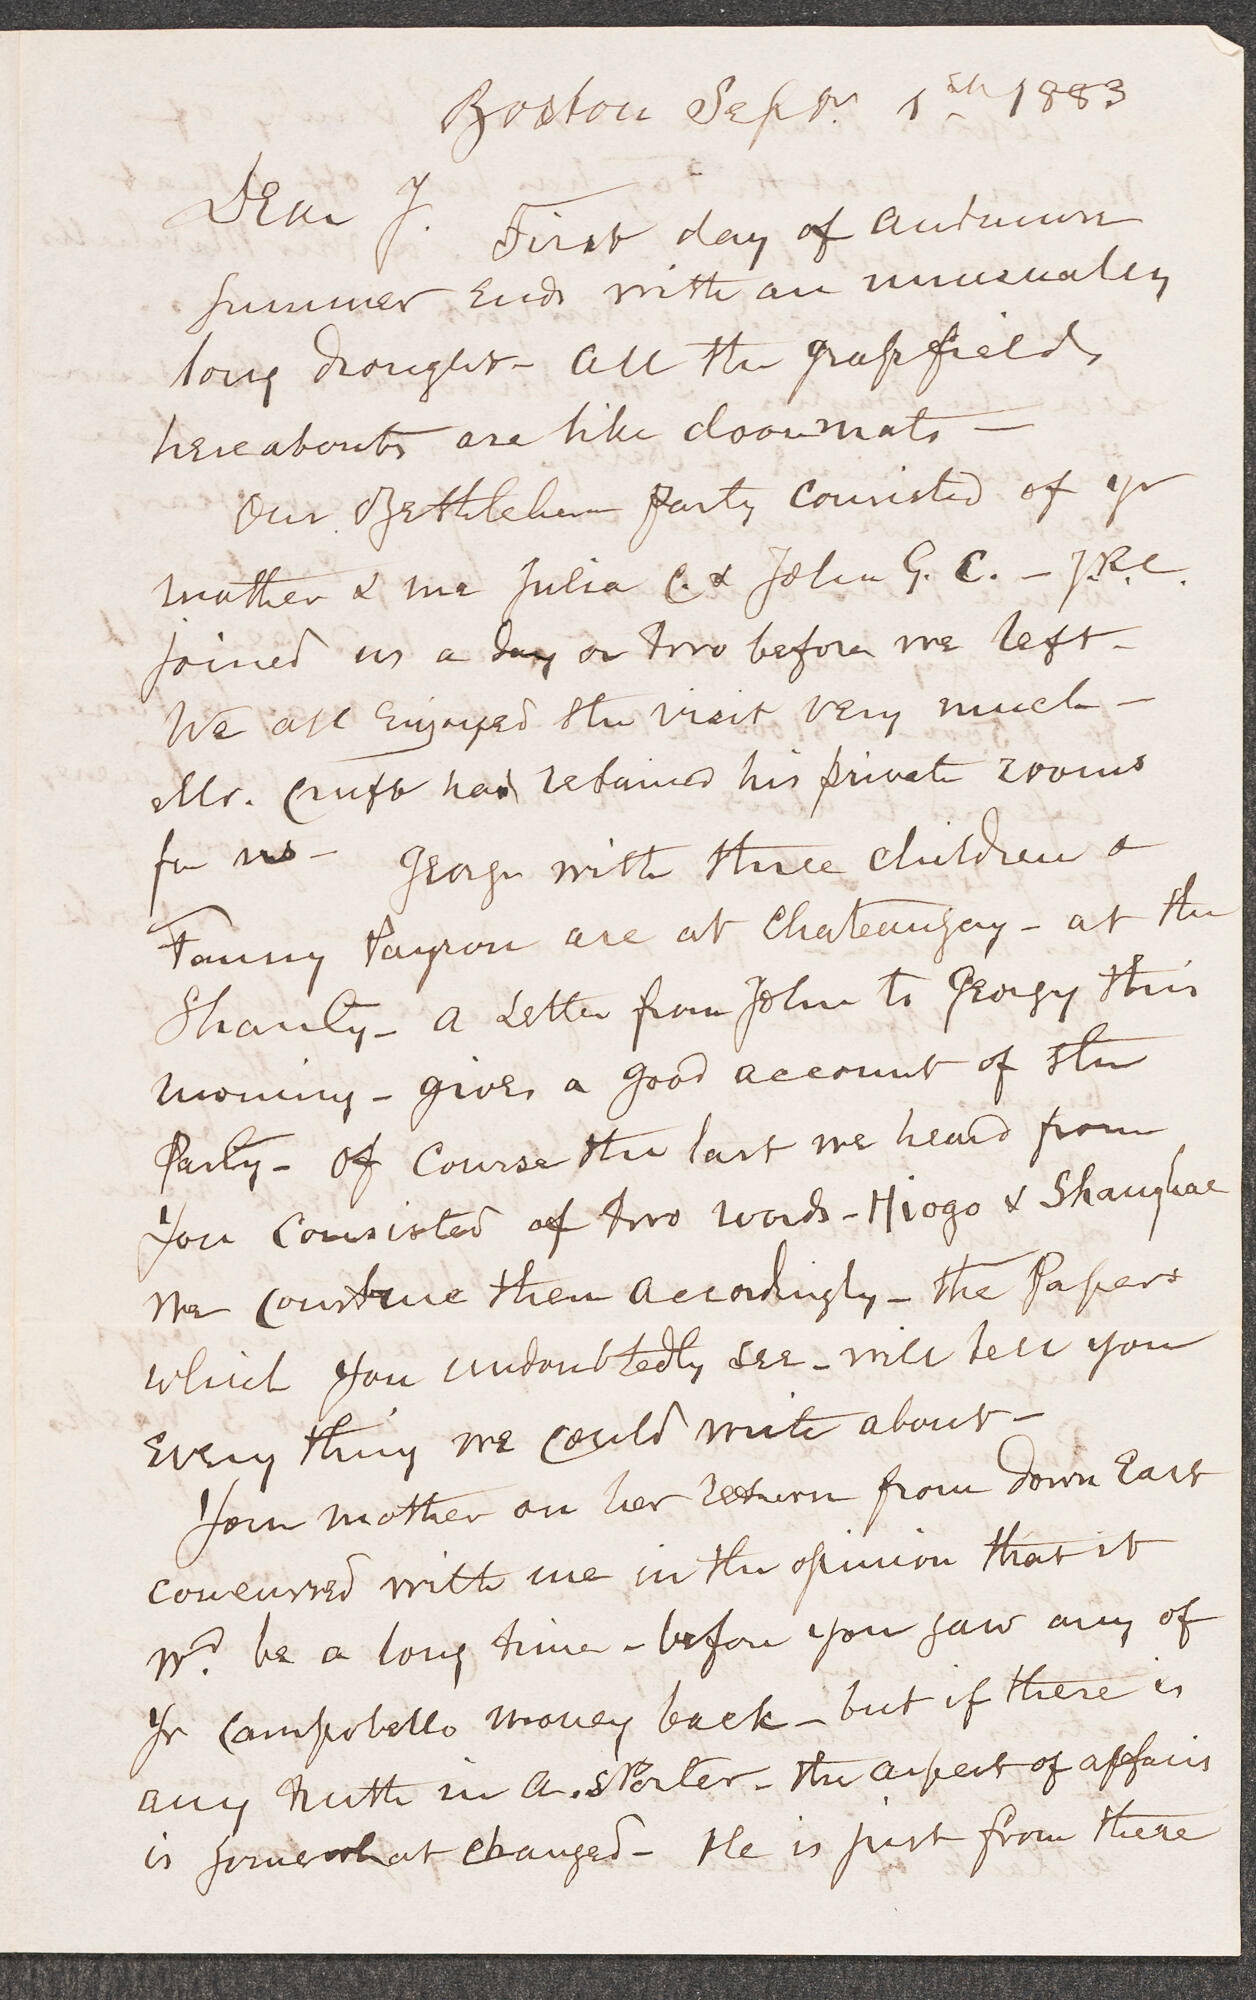 Boston Sept. 1st 1883
Dear J.
First day of autumn
summer ends with an unusually
long drought - all the grassfields
hereabouts are like doormats -
Our Bethlehem Party consisted of yr
mother & me Julia C. & John G. C. - J.R.C.
joined us a day or two before we left -
We all enjoyed the visit very much -
Mr. Cruft had retained his private rooms
for us - George with three children &
Fanny Payson are at Chateaugay - at the
Shanty - a letter from John to Georgy this
morning - gives a good account of the
Party - Of course the last we heard from
you consisted of two words - Hiogo & Shanghae
we construe them accordingly - the Papers
which you undoubtedly see - will tell you
every thing we could write about -
Your mother on her return from down East
concurred with me in the opinion that it
wd. be a long time - before you saw any of
yr Campobello money back - but if there is
any truth in A. S Porter - the aspect of affairs
is somewhat changed - He is just from there